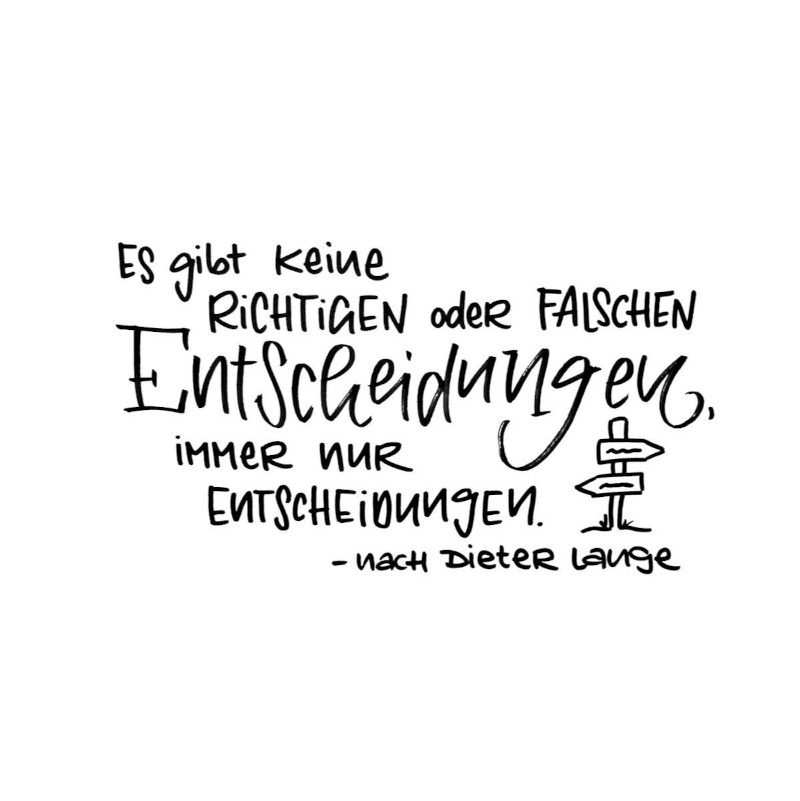 Es gibt keine
RiCHTiGEN oder FALSCHEN
Entscheidungen,
immer nur
ENTSCHEiDUNGEN.
- nach Dieter Lange